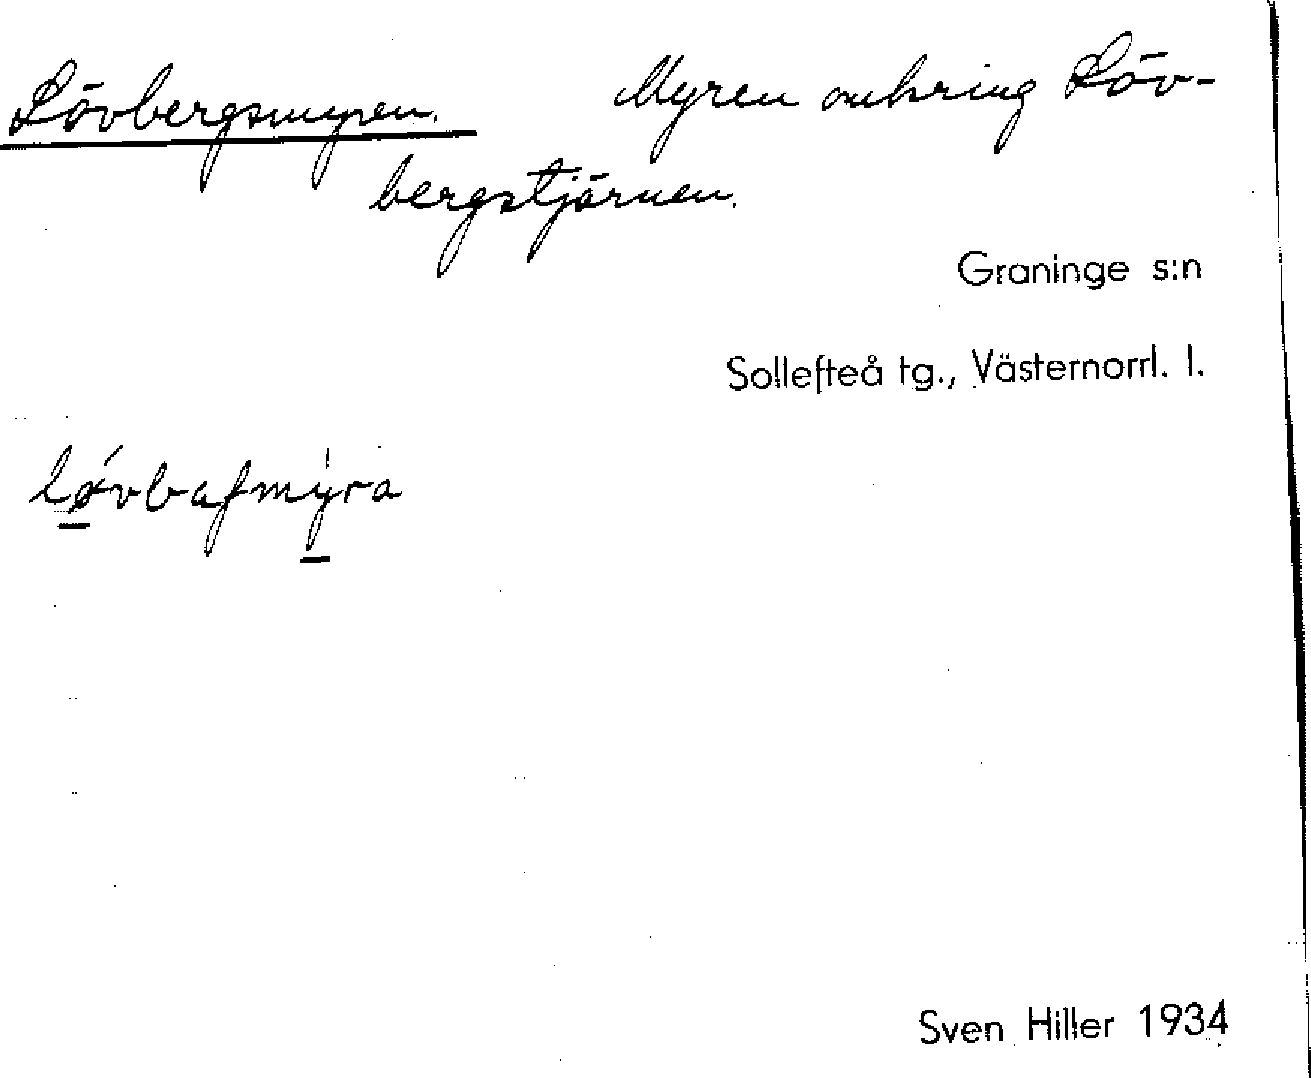 Lövbergsmyren. Myren omkring Löv-
bergstjärnen.
Graninge s:n
Sollefteå tg., Västernorrl. l.
Sven Hiller 1934